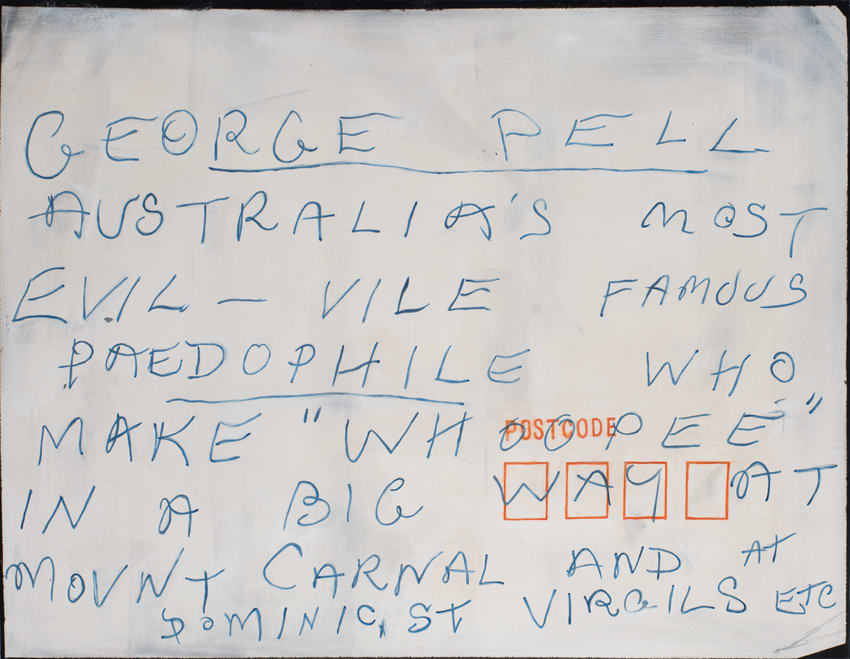 GEORGE PELL
AUSTRALIA'S MOST
EVIL - VILE FAMOUS
PAEDOPHILE WHO
MAKE "WHOOPEE"
POSTCODE
IN A BIG WAY AT
MOUNT CARNAL AND AT
DOMINIC, ST VIRGILS ETC